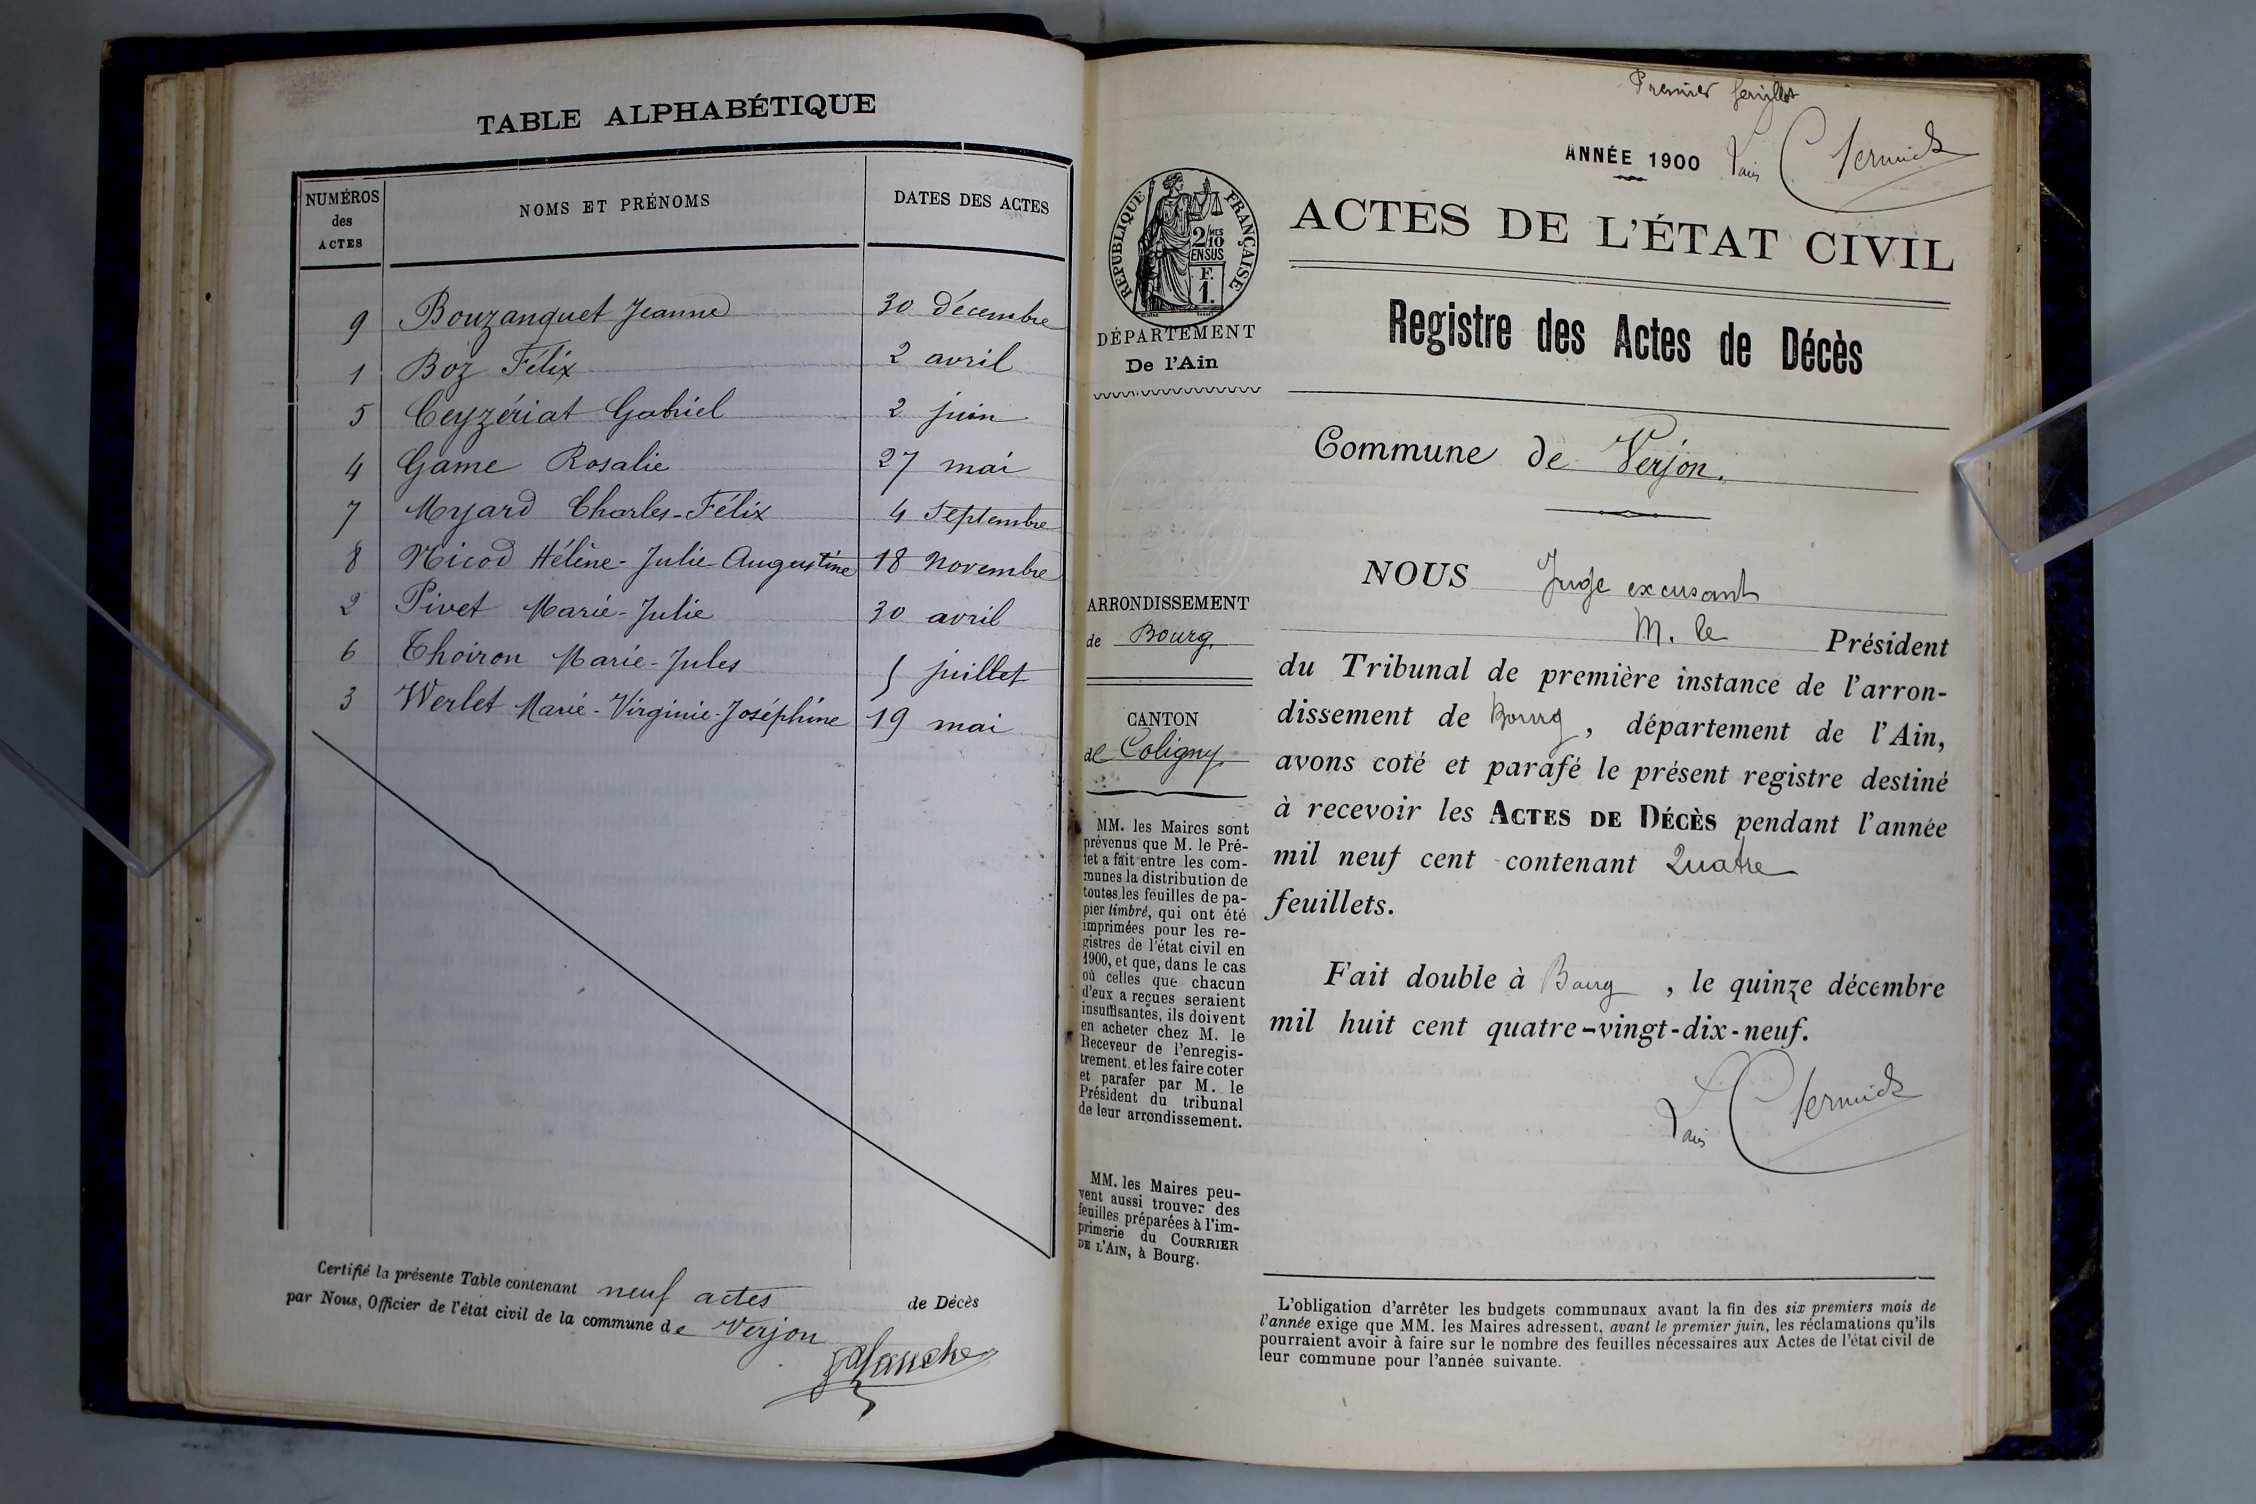 TABLE ALPHABÉTIQUE
NUMÉROS
des
ACTES
NOMS ET PRÉNOMS
DATES DES ACTES
9 Bouzanquet Jeanne 30 décembre
1 Boz Félix 2 avril
5 Ceyzériat Gabriel 2 juin
4 Game Rosalie 27 mai
7 Myard Charles-Félix 4 Septembre
8 Nicod Hélène-Julie-Augustine 18 Novembre
2 Pivet Marie-Julie 30 avril
6 Thoiron Marie-Jules 5 juillet
3 Werlet Marie-Virginie-Joséphine 19 mai
Certifié la présente Table contenant neuf actes de Décès
par Nous, Officier de l'état civil de la commune de Verjon
Premier feuillet
ANNÉE 1900
RÉPUBLIQUE FRANÇAISE
2/10 MES
EN SUS
F.
1.
ACTES DE L'ÉTAT CIVIL
DÉPARTEMENT
De l'Ain
Registre des Actes de Décès
Commune de Verjon.
ARRONDISSEMENT
de Bourg.
CANTON
de Coligny.
MM. les Maires sont
prévenus que M. le Pré-
fet a fait entre les com-
munes la distribution de
toutes les feuilles de pa-
pier timbré, qui ont été
imprimées pour les re-
gistres de l'état civil en
1900, et que, dans le cas
où celles que chacun
d'eux a reçues seraient
insuffisantes, ils doivent
en acheter chez M. le
Receveur de l'enregis-
trement, et les faire coter
et parafer par M. le
Président du tribunal
de leur arrondissement.
MM. les Maires peu-
vent aussi trouver des
feuilles préparées à l'im-
primerie du COURRIER
DE L'AIN, à Bourg.
NOUS Juge excusant
M. le Président
du Tribunal de première instance de l'arron-
dissement de Bourg, département de l'Ain,
avons coté et parafé le présent registre destiné
à recevoir les ACTES DE DÉCÈS pendant l'année
mil neuf cent contenant Quatre
feuillets.
Fait double à Bourg, le quinze décembre
mil huit cent quatre-vingt-dix-neuf.
L'obligation d'arrêter les budgets communaux avant la fin des six premiers mois de
l'année exige que MM. les Maires adressent, avant le premier juin, les réclamations qu'ils
pourraient avoir à faire sur le nombre des feuilles nécessaires aux Actes de l'état civil de
leur commune pour l'année suivante.